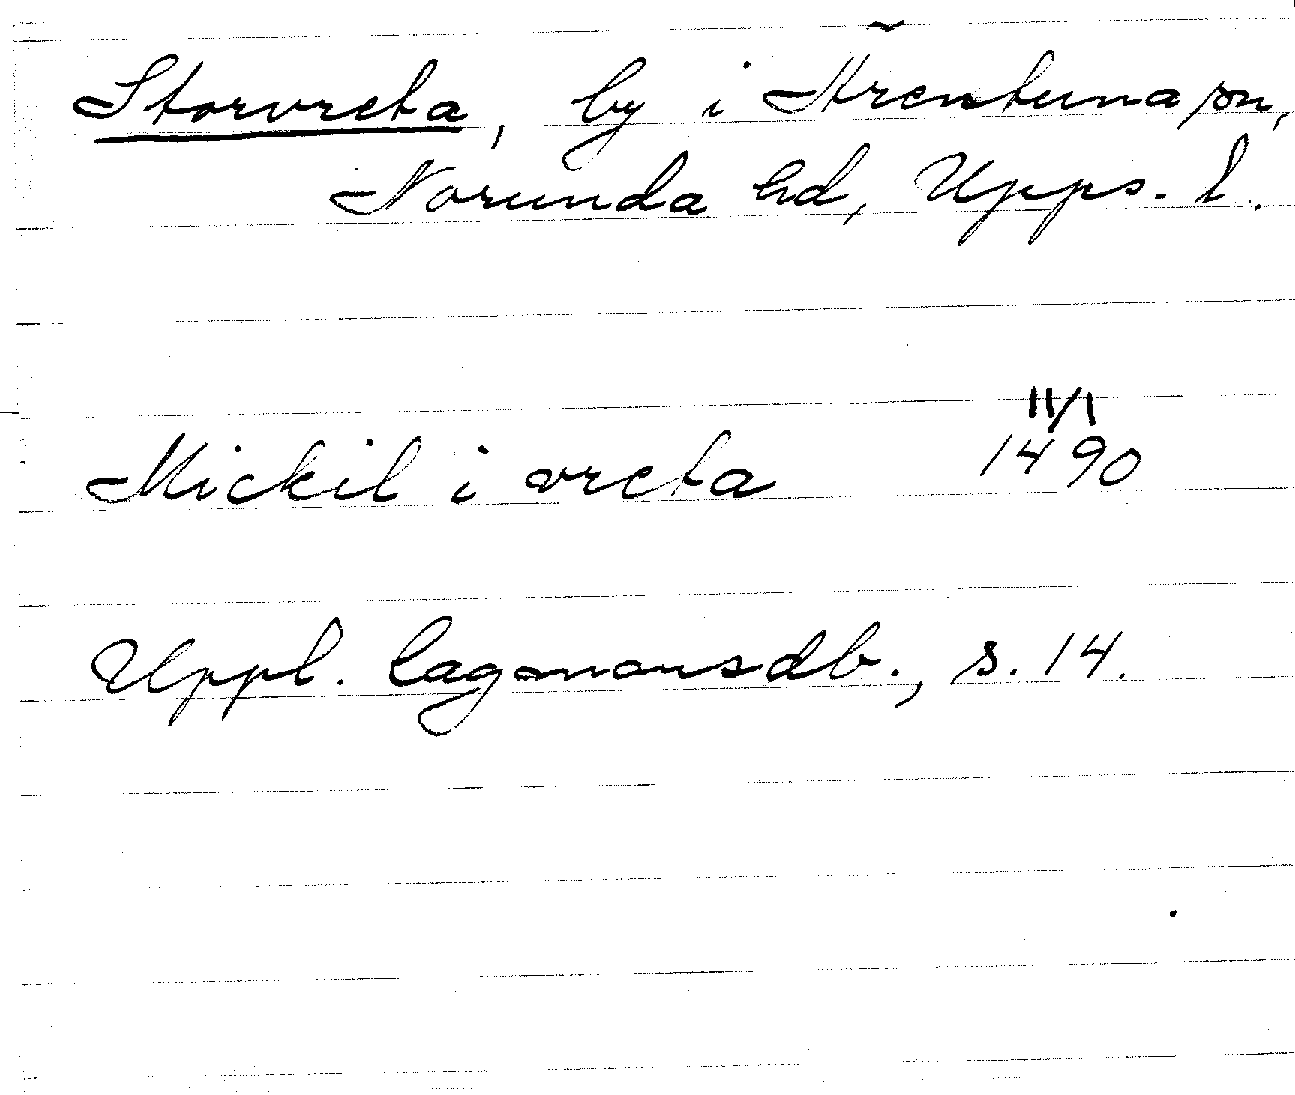 Storvreta, by i Ärentuna sn,
Norunda hd, Upps. l.
11/1
Mickil i vreta 1490
Uppl. lagmansdb., s. 14.